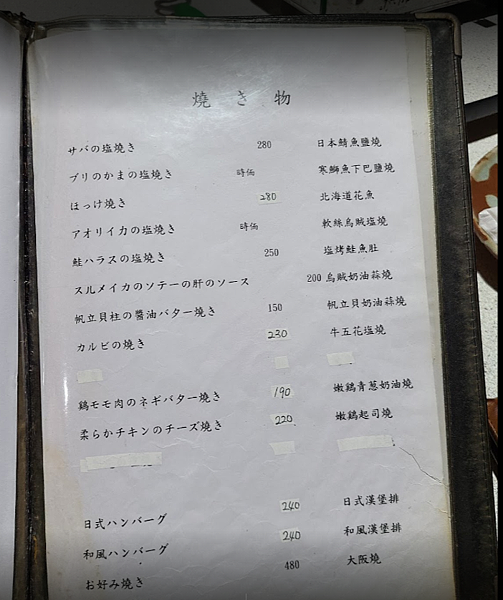 燒き物
サバの塩焼き 280 日本鯖魚鹽燒
ブリのかまの塩焼き 時価 寒鰤魚下巴鹽燒
ほっけ焼き 280 北海道花魚
アオリイカの塩焼き 時価 軟絲烏賊塩燒
鮭ハラスの塩焼き 250 塩烤鮭魚肚
スルメイカのソテーの肝のソース 200 烏賊奶油蒜燒
帆立貝柱の醬油バター焼き 150 帆立貝奶油蒜燒
カルビの焼き 230 牛五花塩燒
鶏モモ肉のネギバター焼き 190 嫩鷄青葱奶油燒
柔らかチキンのチーズ焼き 220 嫩鷄起司燒
日式ハンバーグ 240 日式漢堡排
和風ハンバーグ 240 和風漢堡排
お好み焼き 480 大阪燒